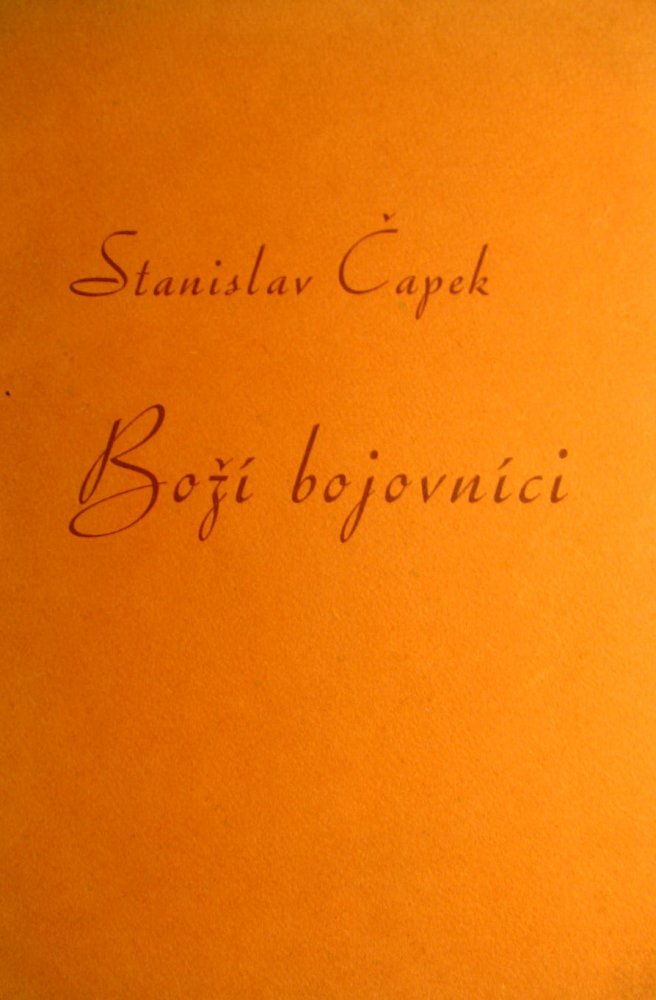 Stanislav Čapek
Boží bojovníci